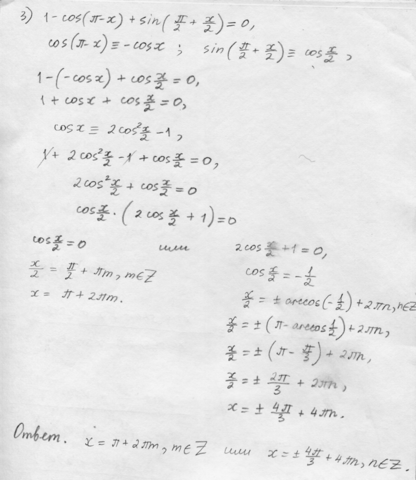 3) 1 - cos(π-x) + sin(π/2 + x/2) = 0,
cos(π-x) ≡ -cosx ; sin(π/2 + x/2) ≡ cos x/2 ,
1-(-cosx) + cos x/2 = 0,
1 + cosx + cos x/2 = 0,
cosx ≡ 2cos² x/2 - 1,
1 + 2cos² x/2 - 1 + cos x/2 = 0,
2cos² x/2 + cos x/2 = 0
cos x/2 · (2cos x/2 + 1) = 0
cos x/2 = 0 или 2cos x/2 + 1 = 0,
x/2 = π/2 + πm, m∈Z
x = π + 2πm.
cos x/2 = -1/2
x/2 = ± arccos(-1/2) + 2πn, n∈Z
x/2 = ± (π - arccos 1/2) + 2πn,
x/2 = ± (π - π/3) + 2πn,
x/2 = ± 2π/3 + 2πn,
x = ± 4π/3 + 4πn.
Ответ. x = π + 2πm, m∈Z или x = ± 4π/3 + 4πn, n∈Z.